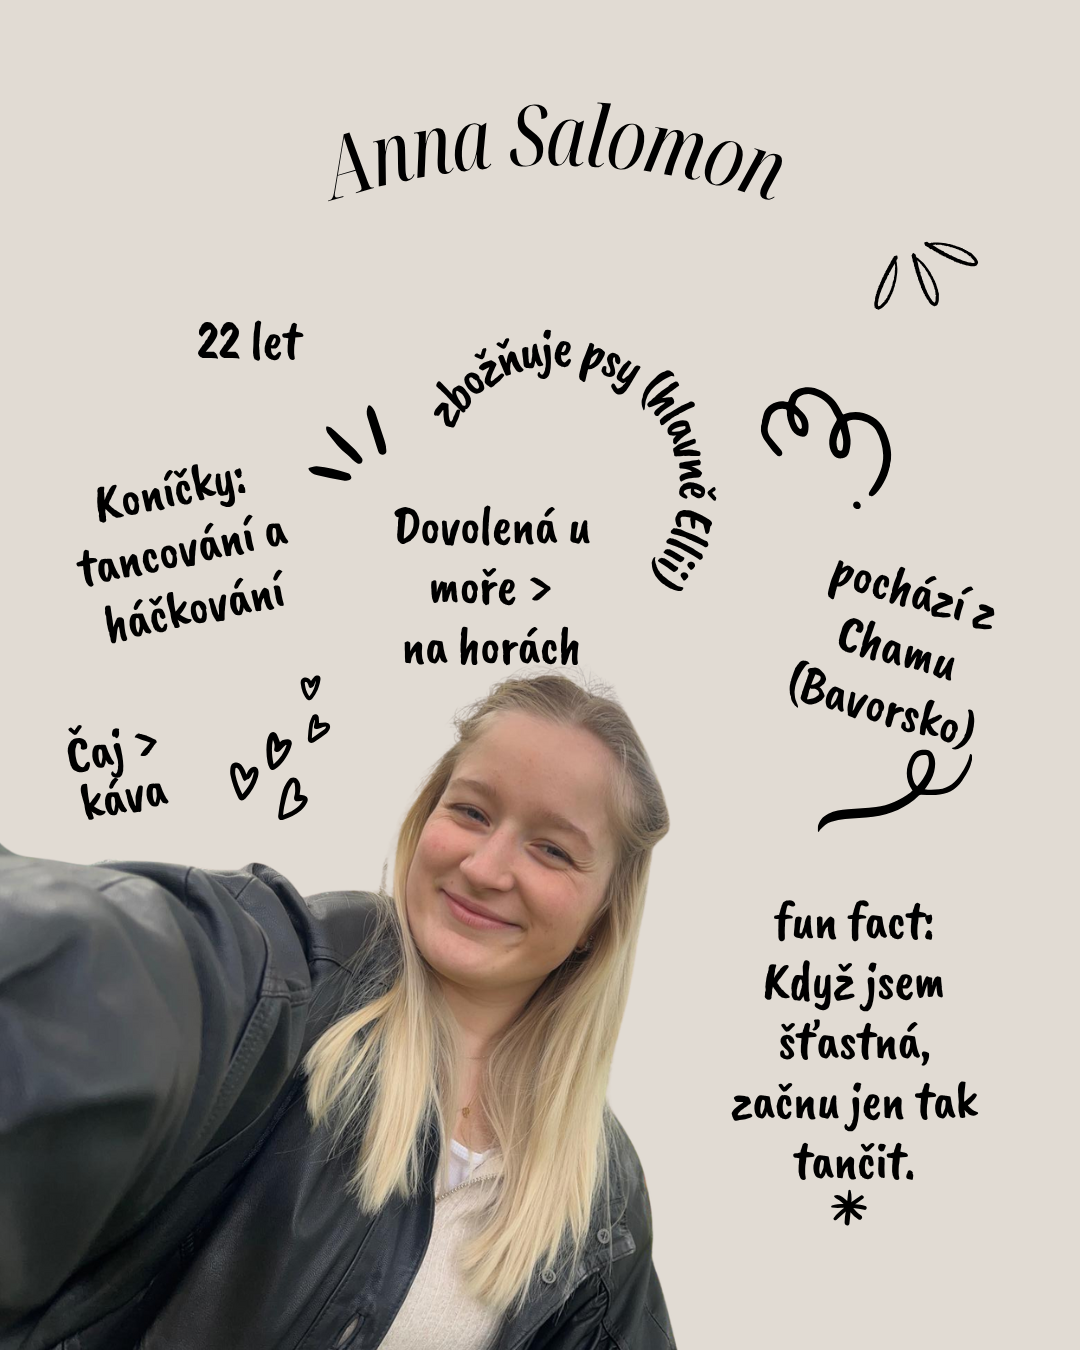 Anna Salomon
22 let
zbožňuje psy (hlavně Elli)
Koníčky:
tancování a
háčkování
Dovolená u
moře >
na horách
pochází z
Chamu
(Bavorsko)
Čaj >
káva
fun fact:
Když jsem
šťastná,
začnu jen tak
tančit.